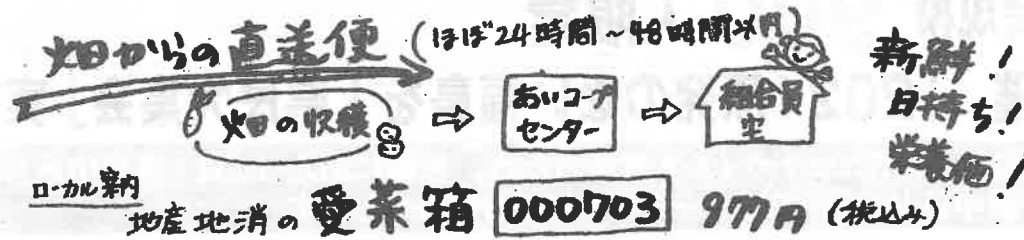 畑からの直送便 (ほぼ24時間～48時間以内)
畑の収穫 ⇨ あいコープセンター ⇨ 組合員宅
新鮮!
日持ち!
栄養価!
ローカル案内
地産地消の愛菜箱 000703 977円 (税込み)